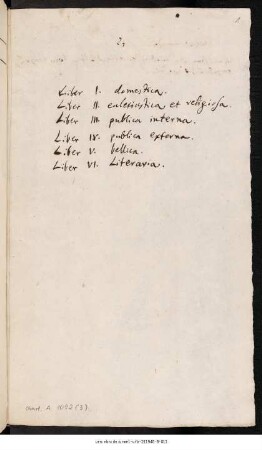 Liber I. domestica.
Liber II. eulesiastica et religiosa.
Liber III. publica interna.
Liber IV. publica externa.
Liber V. bellica.
Liber VI. Literaria.